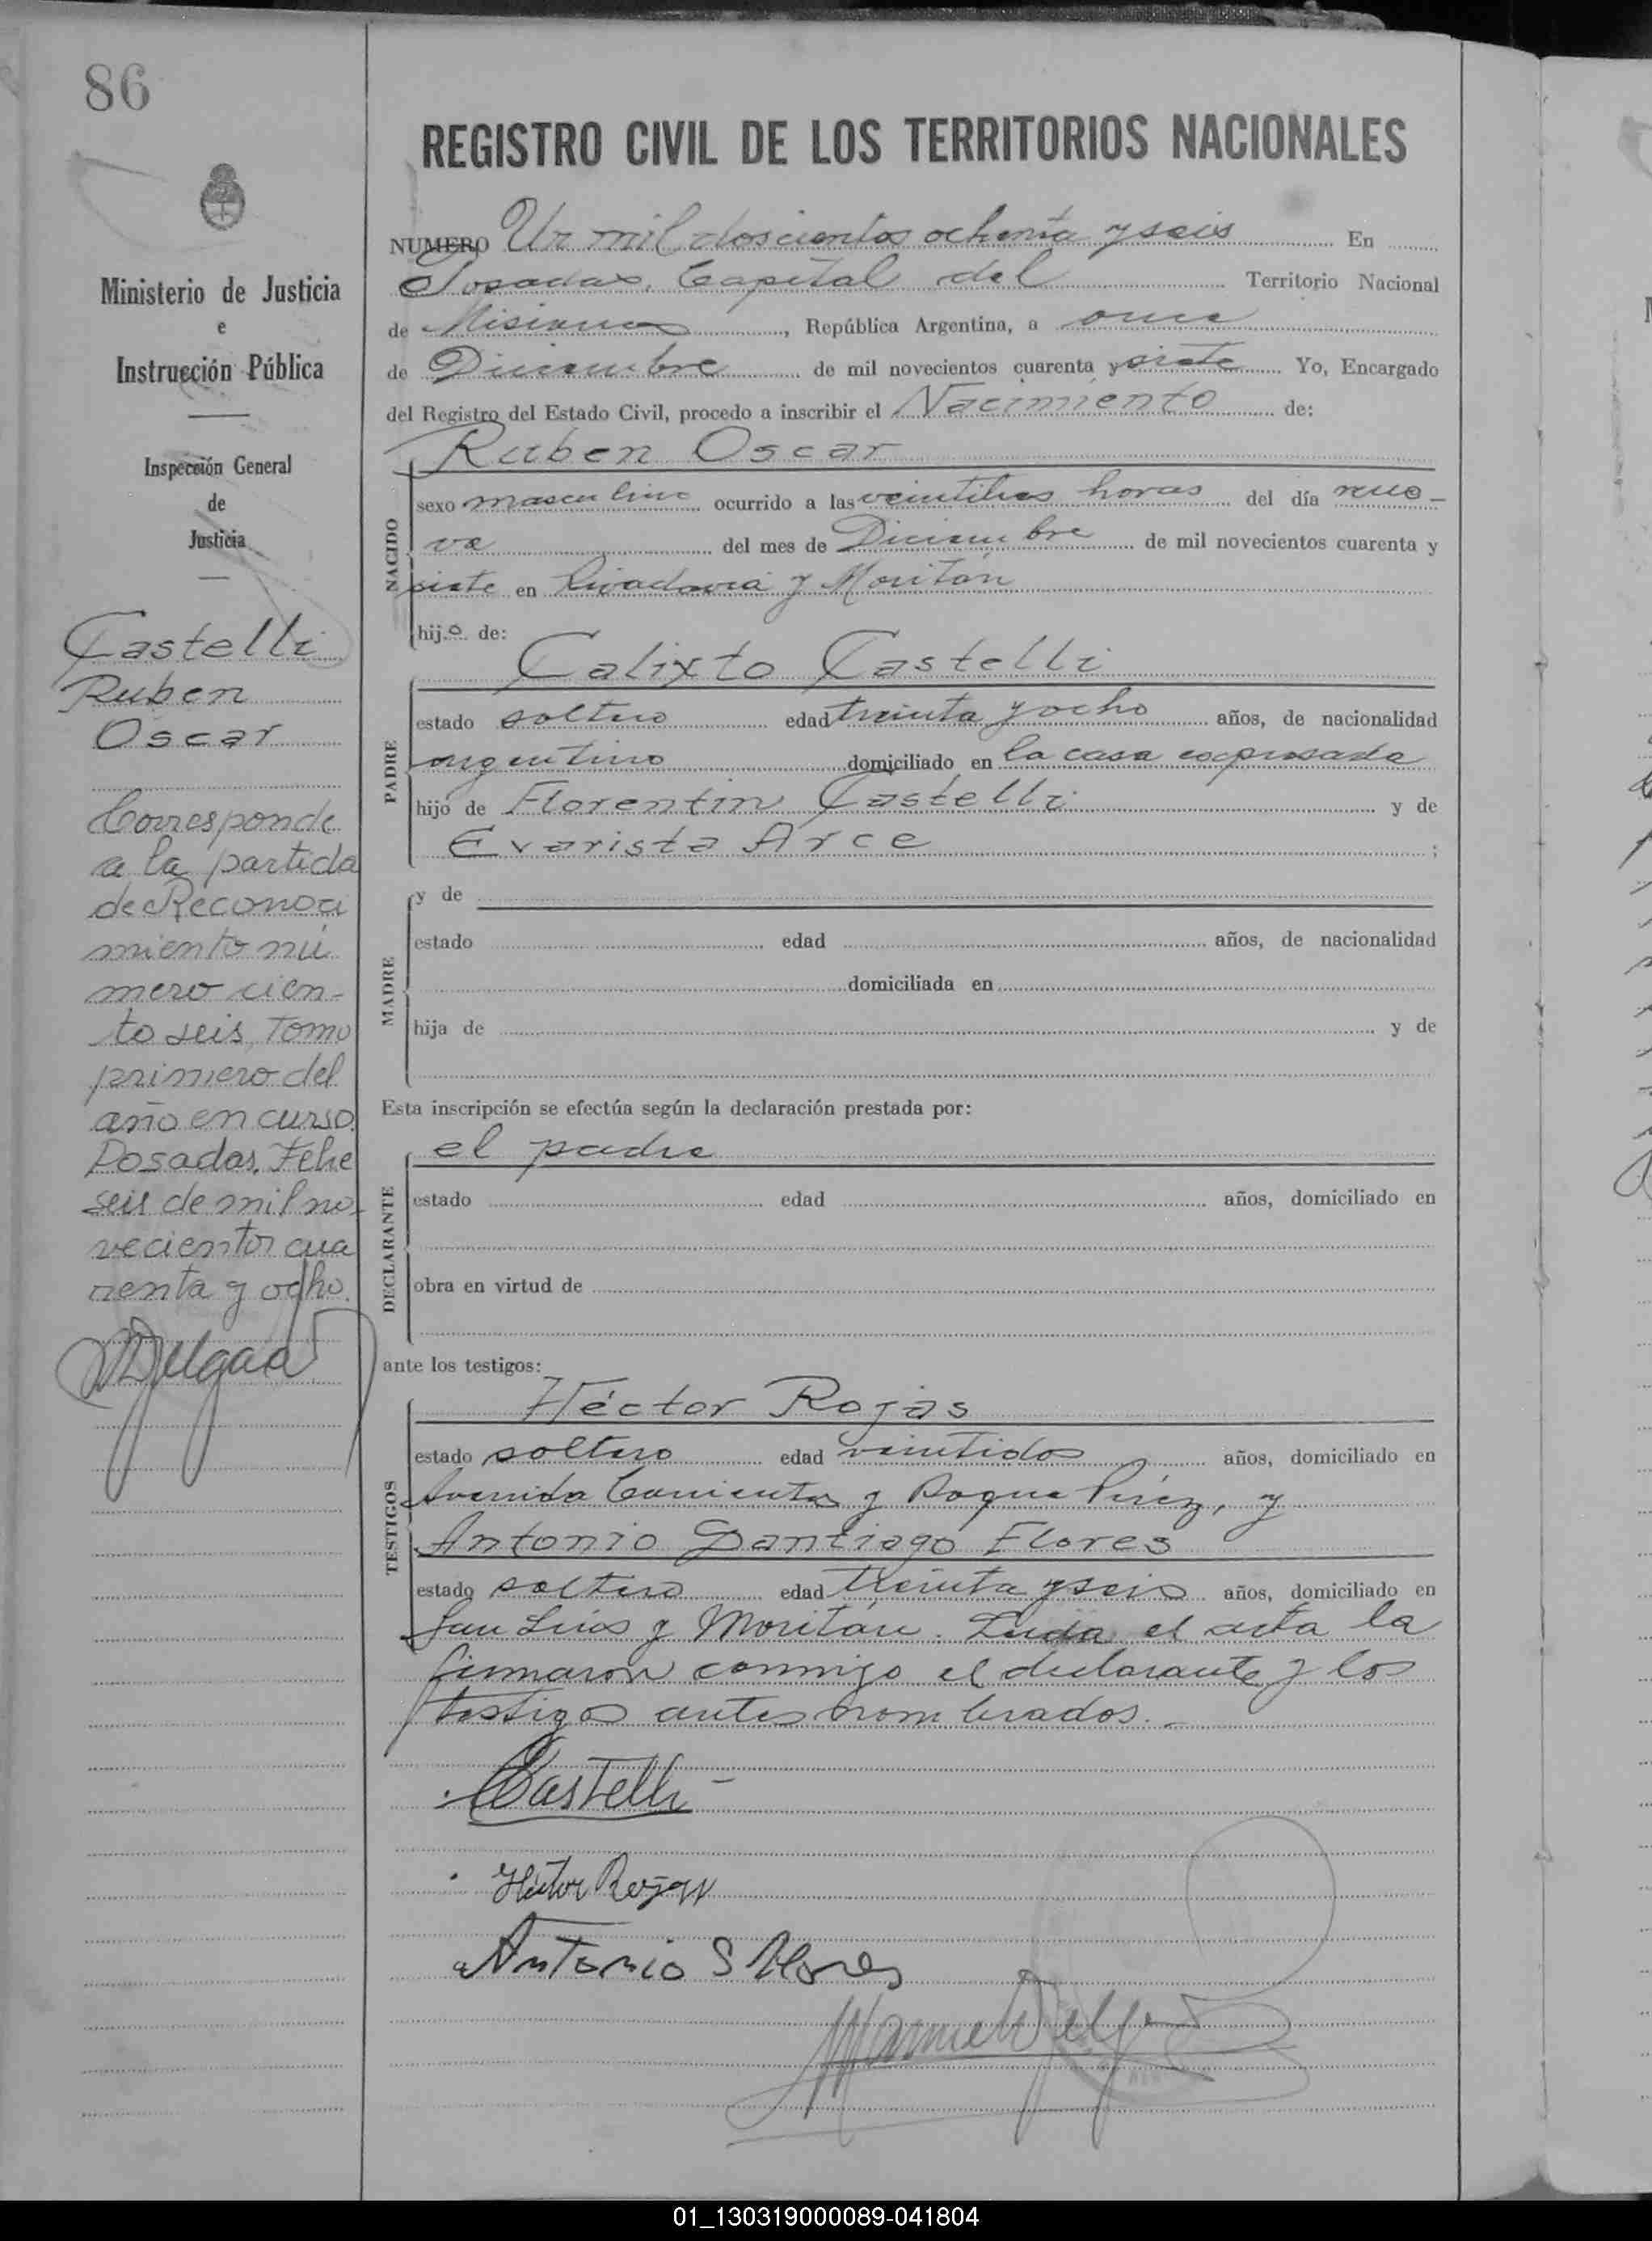 86
Ministerio de Justicia
e
Instrucción Pública
Inspección General
de
Justicia
Castelli
Ruben
Oscar
Corresponde
a la partida
de Reconoci
miento nú
mero cien-
to seis, Tomo
primero del
año en curso.
Posadas,
seis de mil no-
vecientos cua
renta y ocho.
REGISTRO CIVIL DE LOS TERRITORIOS NACIONALES
NUMERO Un mil doscientos ochenta y seis En
Posadas, Capital del Territorio Nacional
de Misiones, República Argentina, a once
de Diciembre de mil novecientos cuarenta y siete Yo, Encargado
del Registro del Estado Civil, procedo a inscribir el Nacimiento de:
Ruben Oscar
NACIDO
sexo masculino ocurrido a las veintitres horas del día nue-
ve del mes de Diciembre de mil novecientos cuarenta y
siete en Rivadavia y Moritán
hijo de:
Calixto Castelli
PADRE
estado soltero edad treinta y ocho años, de nacionalidad
argentino domiciliado en la casa expresada
hijo de Florentin Castelli y de
Evarista Arce ;
MADRE
y de
estado edad años, de nacionalidad
domiciliada en
hija de y de
Esta inscripción se efectúa según la declaración prestada por:
el padre
DECLARANTE
estado edad años, domiciliado en
obra en virtud de
ante los testigos:
Héctor Rojas
TESTIGOS
estado soltero edad veintidos años, domiciliado en
Avenida Corrientes y Roque Pérez, y
Antonio Santiago Flores
estado soltero edad treinta y seis años, domiciliado en
San Luis y Moritán. Leída el acta la
firmaron conmigo el declarante y los
testigos antes nombrados.-
Castelli
Héctor Rojas
Antonio S Flores
01_130319000089-041804